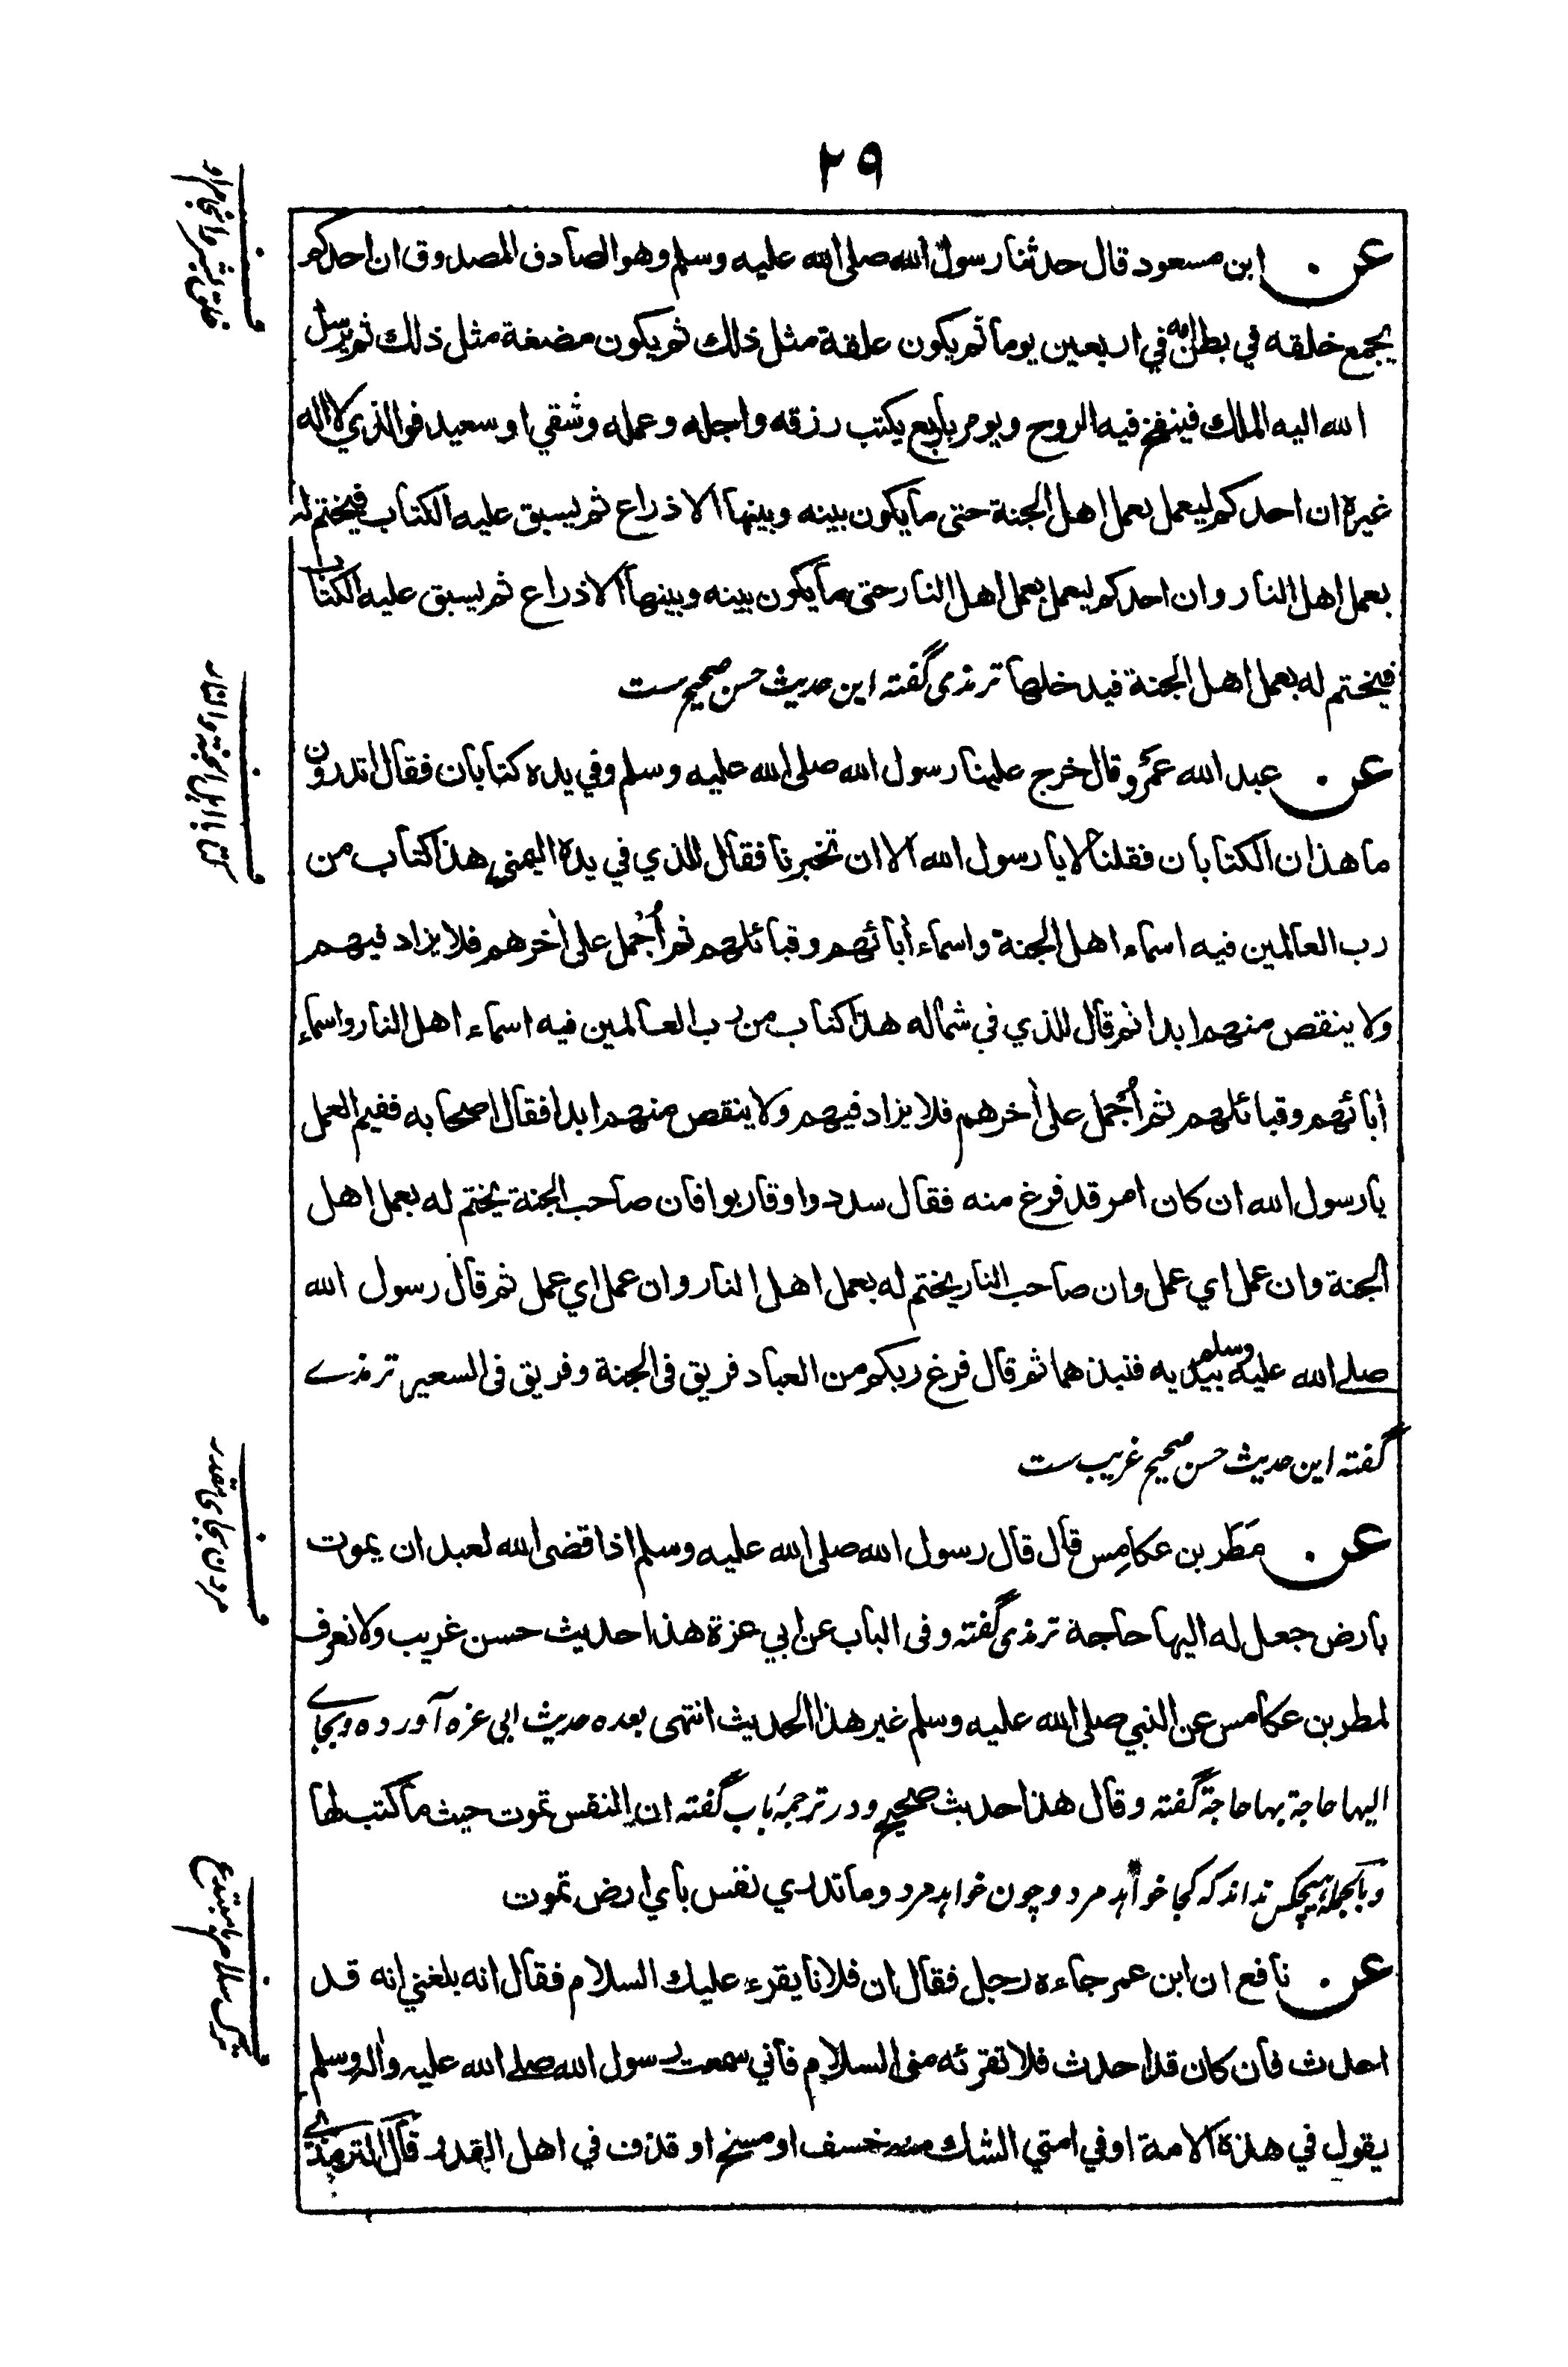 ۲۹
عن ابن مسعود قال حدثنا رسول الله صلى الله عليه وسلم وهو الصادق المصدوق ان احدكم
يجمع خلقه في بطن امه في اربعين يوما ثم يكون علقة مثل ذلك ثم يكون مضغة مثل ذلك ثم يرسل
الله اليه الملك فينفخ فيه الروح ويومر باربع يكتب رزقه واجله وعمله وشقي او سعيد فوالذي لا اله
غيره ان احدكم ليعمل بعمل اهل الجنة حتى ما يكون بينه وبينها الا ذراع ثم يسبق عليه الكتاب فيختم له
بعمل اهل النار وان احدكم ليعمل بعمل اهل النار حتى ما يكون بينه وبينها الا ذراع ثم يسبق عليه الكتاب
فيختم له بعمل اهل الجنة فيدخلها ترمذى گفته اين حديث حسن صحيح ست
عن عبد الله عمرو قال خرج علينا رسول الله صلى الله عليه وسلم وفي يده كتابان فقال اتدرون
ما هذان الكتابان فقلنا لا يا رسول الله الا ان تخبرنا فقال للذي في يده اليمنى هذا كتاب من
رب العالمين فيه اسماء اهل الجنة واسماء أبائهم وقبائلهم ثم أُجمل على أخرهم فلا يزاد فيهم
ولا ينقص منهم ابدا ثم قال للذي في شماله هذا كتاب من رب العالمين فيه اسماء اهل النار واسماء
أبائهم وقبائلهم ثم أُجمل على أخرهم فلا يزاد فيهم ولا ينقص منهم ابدا فقال اصحابه ففيم العمل
يا رسول الله ان كان امر قد فرغ منه فقال سددوا وقاربوا فان صاحب الجنة يختم له بعمل اهل
الجنة وان عمل اي عمل وان صاحب النار يختم له بعمل اهل النار وان عمل اي عمل ثم قال رسول الله
صلى الله عليه وسلم بيديه فنبذهما ثم قال فرغ ربكم من العباد فريق فى الجنة وفريق فى السعير ترمذے
گفته اين حديث حسن صحيح غريب ست
عن مَطَر بن عكامِس قال قال رسول الله صلى الله عليه وسلم اذا قضى الله لعبد ان يموت
بارض جعل له اليها حاجة ترمذى گفته وفى الباب عن ابي عزة هذا حديث حسن غريب ولا نعرف
لمطر بن عكامس عن النبي صلى الله عليه وسلم غير هذا الحديث انتهى بعده حديث ابى عزه آورده وبجاے
اليها حاجة بها حاجة گفته وقال هذا حديث صحيح ودر ترجمۀ باب گفته ان النفس تموت حيث ما كتب لها
وبالجمله هيچكس نداند كه كجا خواهد مرد وچون خواهد مرد وما تدري نفس باي ارض تموت
عن نافع ان ابن عمر جاءه رجل فقال ان فلانا يقرء عليك السلام فقال انه بلغني انه قد
احدث فان كان قد احدث فلا تقرئه منى السلام فاني سمعت رسول الله صلى الله عليه واله وسلم
يقول في هذه الامة او في امتي الشك منه خسف او مسخ او قذف في اهل القدر قال الترمذي
كتاب اهل الجنة والنار
مردن بجاى مقدر
ترك سلام بر مبتدع